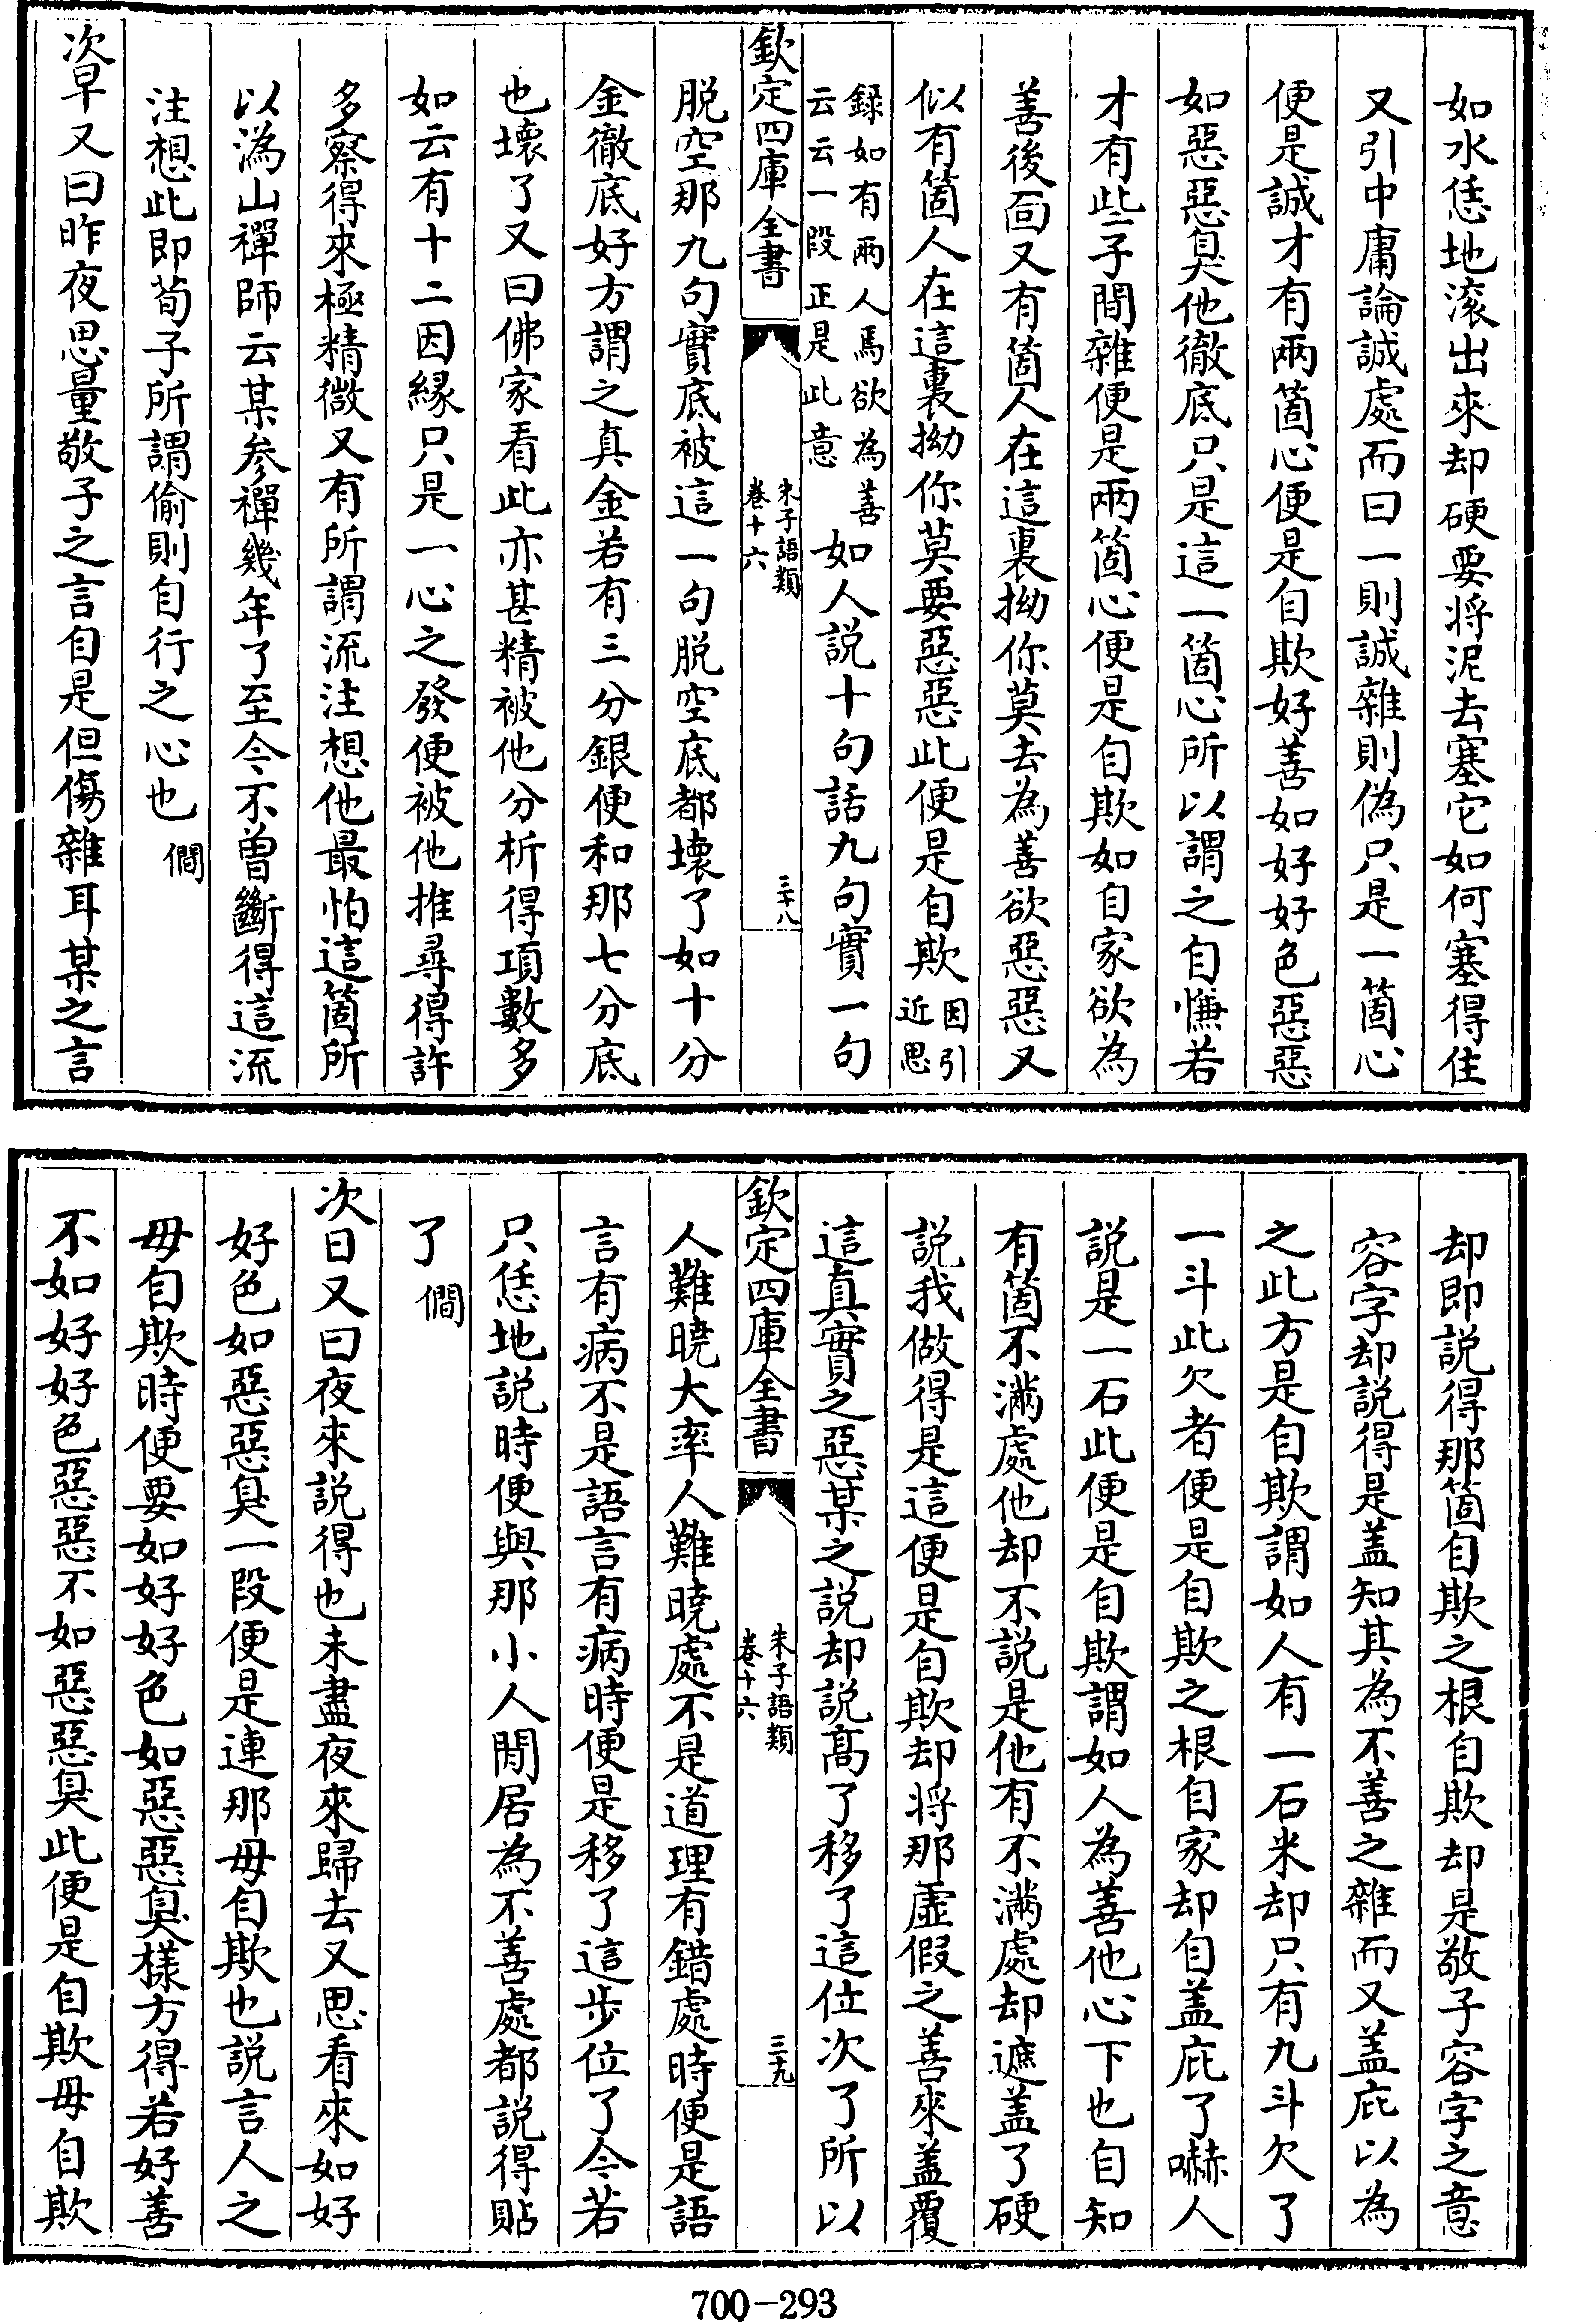 如水恁地滚出來却硬要将泥去塞它如何塞得住
又引中庸論誠處而曰一則誠雜則偽只是一箇心
便是誠才有兩箇心便是自欺好善如好好色惡惡
如惡惡臭他徹底只是這一箇心所以謂之自慊若
才有些子間雜便是兩箇心便是自欺如自家欲為
善後面又有箇人在這裏拗你莫去為善欲惡惡又
似有箇人在這裏拗你莫要惡惡此便是自欺因引近思
錄如有兩人焉欲為善云云一段正是此意如人説十句話九句實一句
欽定四庫全書
朱子語類
卷十六
三十八
脱空那九句實底被這一句脱空底都壞了如十分
金徹底好方謂之真金若有三分銀便和那七分底
也壞了又曰佛家看此亦甚精被他分析得項數多
如云有十二因縁只是一心之發便被他推尋得許
多察得來極精微又有所謂流注想他最怕這箇所
以溈山禪師云某参禪幾年了至今不曾斷得這流
注想此即荀子所謂偷則自行之心也 僩
次早又曰昨夜思量敬子之言自是但傷雜耳某之言
却即説得那箇自欺之根自欺却是敬子容字之意
容字却説得是盖知其為不善之雜而又盖庇以為
之此方是自欺謂如人有一石米却只有九斗欠了
一斗此欠者便是自欺之根自家却自盖庇了嚇人
説是一石此便是自欺謂如人為善他心下也自知
有箇不滿處他却不説是他有不滿處却遮盖了硬
説我做得是這便是自欺却将那虚假之善來盖覆
這真實之惡某之説却説髙了移了這位次了所以
欽定四庫全書
朱子語類
卷十六
三十九
人難曉大率人難曉處不是道理有錯處時便是語
言有病不是語言有病時便是移了這步位了今若
只恁地説時便與那小人閒居為不善處都説得貼
了 僩
次日又曰夜來説得也未盡夜來歸去又思看來如好
好色如惡惡臭一段便是連那毋自欺也説言人之
毋自欺時便要如好好色如惡惡臭樣方得若好善
不如好好色惡惡不如惡惡臭此便是自欺毋自欺
700-293